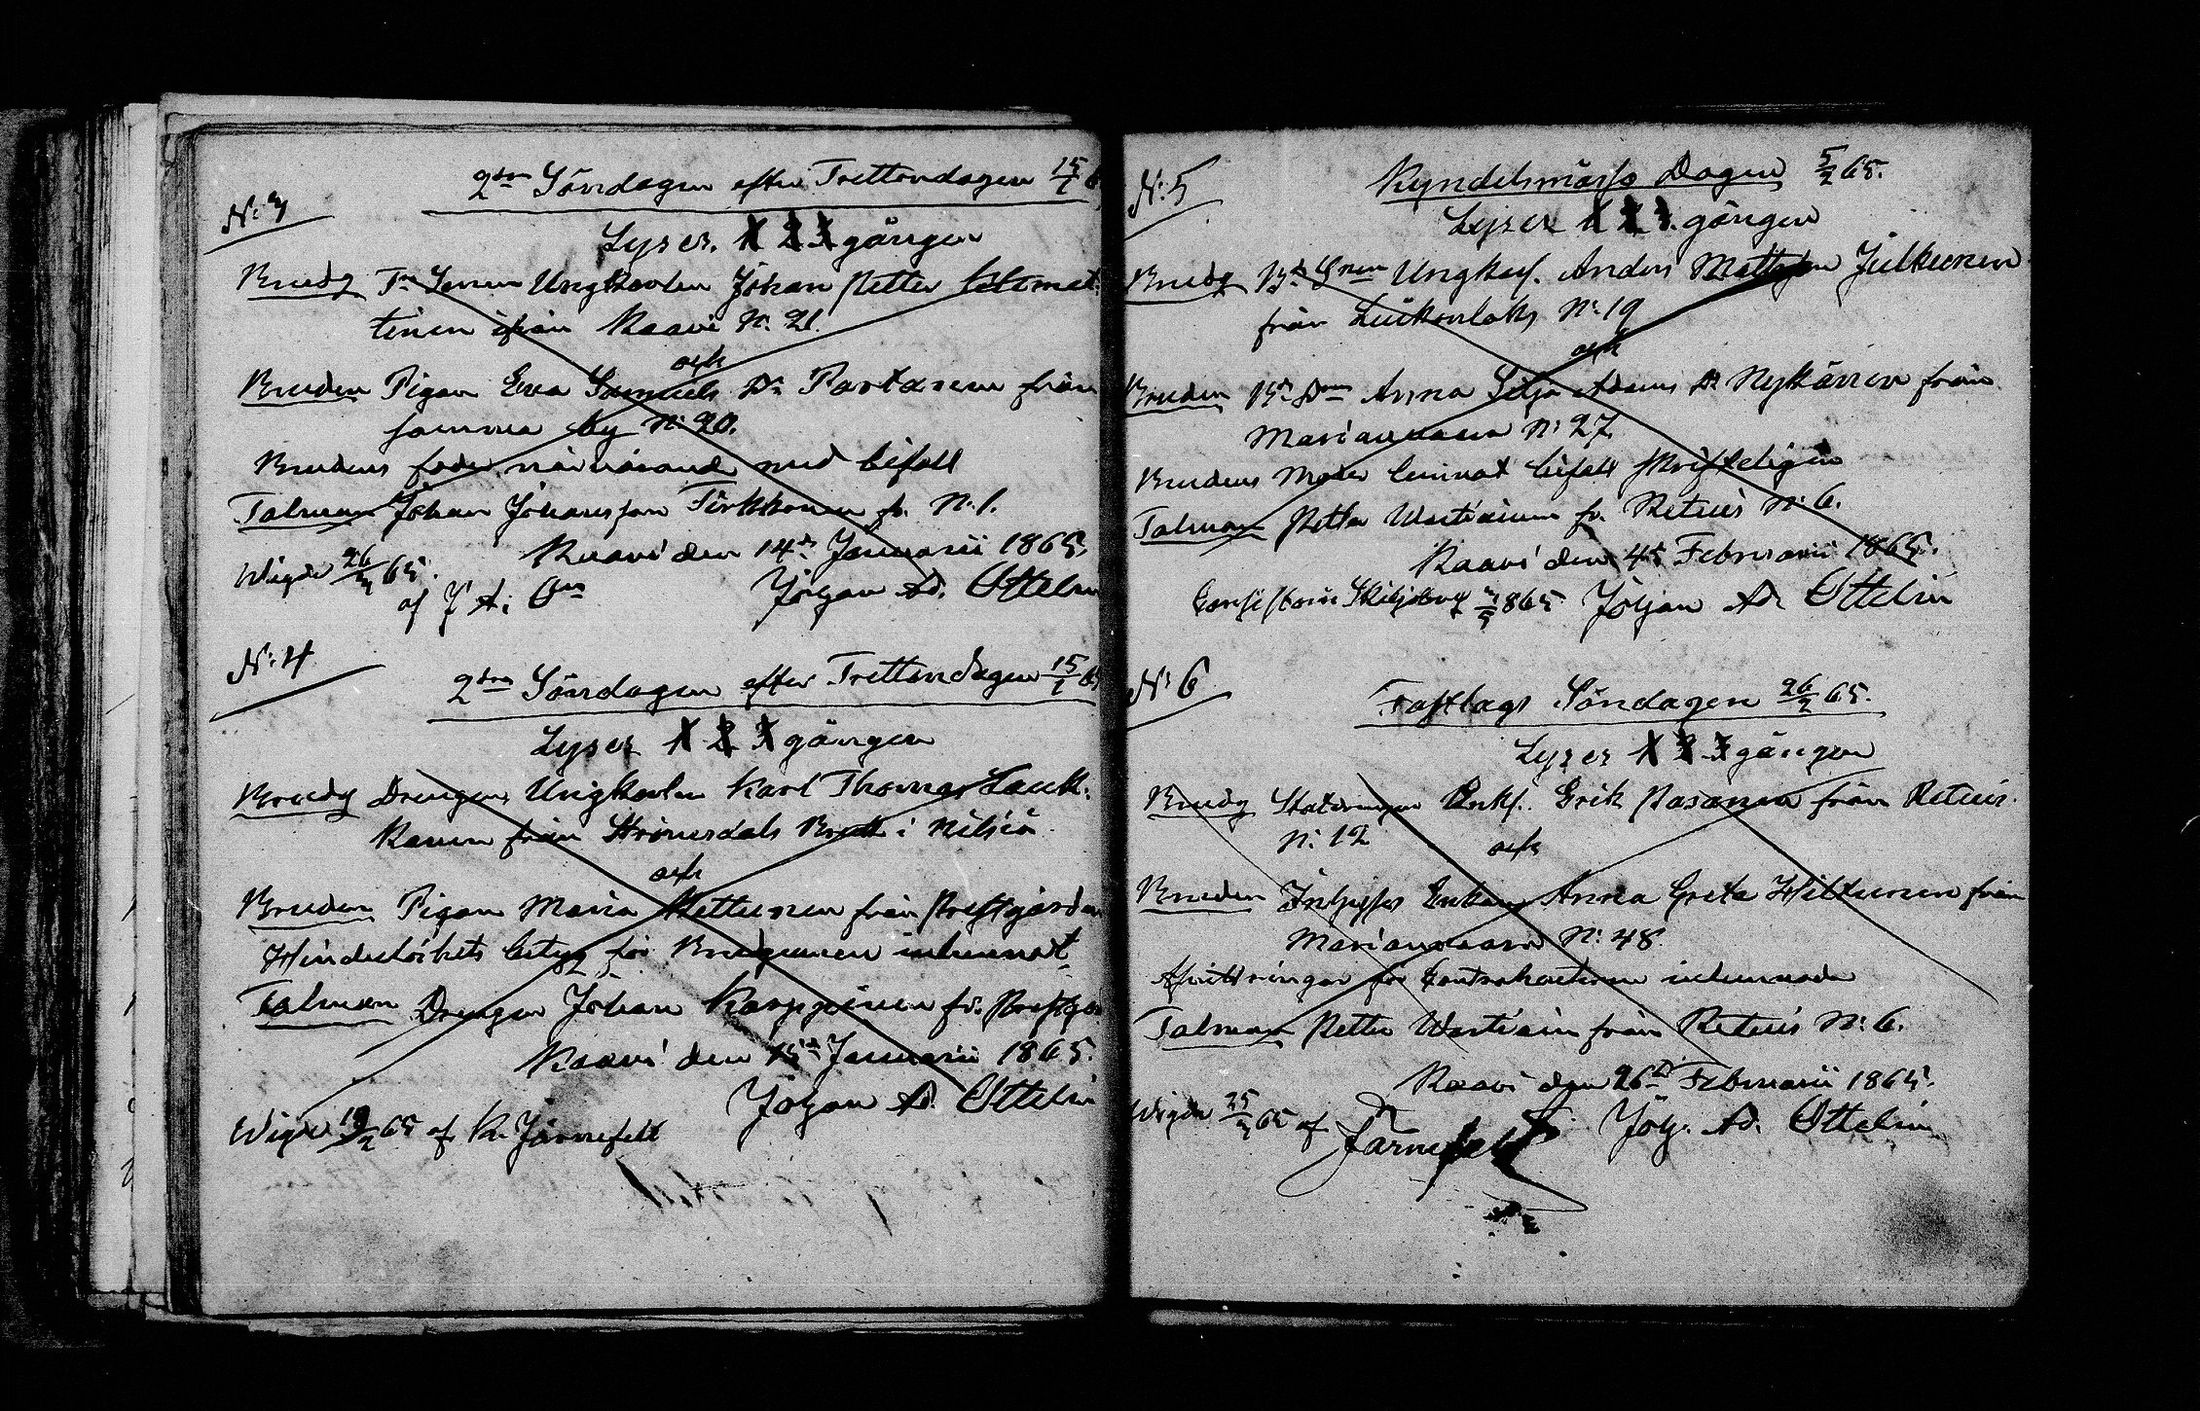 N:3
2dra Söndagen efter Trettondagen 15/1 6
Lyser 1 2 3 gången
Brudg Ungkarlen Johan Petter
tinen ifrån Kaavi N: 21.
och
Bruden Pigan Eva Samuels Dr Partanen från
samma by N: 20.
Brudens fader närvarande med bifall
Talman Johan Johansson Tirkkonen fr. N. 1.
Kaavi den 14de Januarii 1865.
Wigde 26/3 65.
af J A; Johan Ad. Ottelin
N: 4
2dra Söndagen efter Trettondagen 15/1 65
Lyser 1 2 3 gången
Brudg Drengen Ungkarlen Karl Thomas Lauk-
kanen från Strömsdals Bruk i Nilsiä
och
Bruden Pigan Maria från Prestgården
Hinderlöshets betyg för Brudgummen inlemnat
Talman Drengen Johan Karppinen fr. Prestgår
Kaavi den 15de Januarii 1865.
Johan Ad. Ottelin
Wigde 19/2 65 af K. Järnefelt
N: 5
Kyndelsmässo Dagen 5/2 65.
Lyser 1 2 3 gången
Brudg Bd Snen Ungkarl. Anders Mattsson Julkunen
från Luikonlaks N: 19
och
Bruden Bd Dren Anna Adams Dr Nykänen från
Mariavaara N: 27
Brudens Moder lemnat bifall skrifteligen
Talman Petter Wartiainen fr. Retuis N: 6.
Kaavi den 4de Februarii 1865.
1865 Johan Ad. Ottelin
N: 6
Fastlags Söndagen 26/2 65.
Lyser 1 2 3 gången
Brudg Enkl. Erik Pasanen från Retuis
N: 12
och
Bruden Inhyses Enkan Anna Greta Hiltunen från
Mariavaara N: 48
Afvittringar för Contrahenterne inlemnade
Talman Petter Wartiain från Retuis N: 6.
Kaavi den 26de Februarii 1865.
Wigde 25/3 65 af Järnefelt Joh. Ad. Ottelin